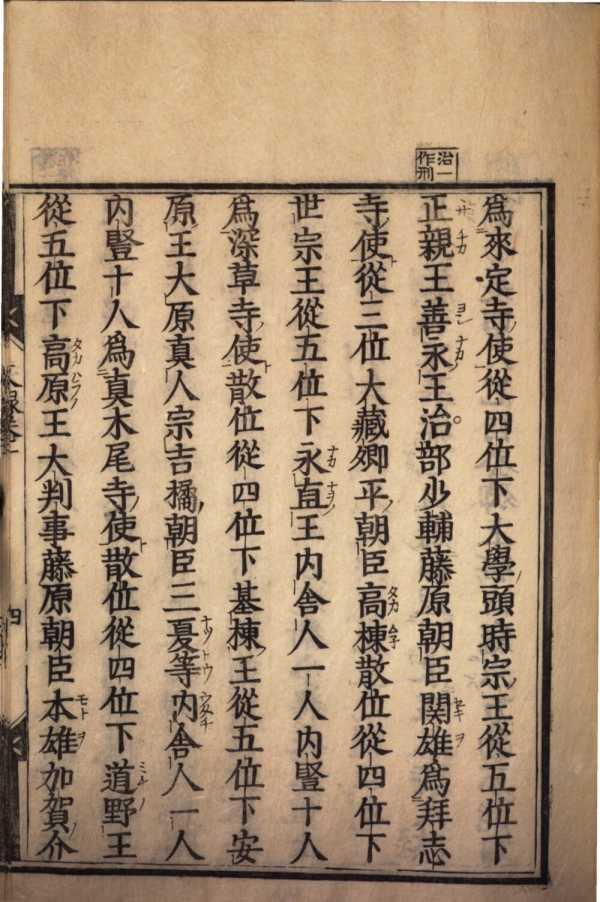 治一
作刑
為來定寺使從四位下大學頭時宗王從五位下
正親王善永王治部少輔藤原朝臣関雄為拜志
寺使從三位大藏卿平朝臣高棟散位從四位下
世宗王從五位下永直王内舎人一人内豎十人
為深草寺使散位從四位下基棟王從五位下安
原王大原真人宗吉橘朝臣三夏等内舎人一人
内豎十人為真木尾寺使散位從四位下道野王
從五位下高原王大判事藤原朝臣本雄加賀介
四